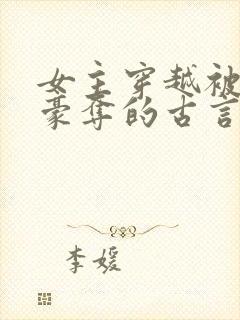 女主穿越被
豪夺的古言
李媛